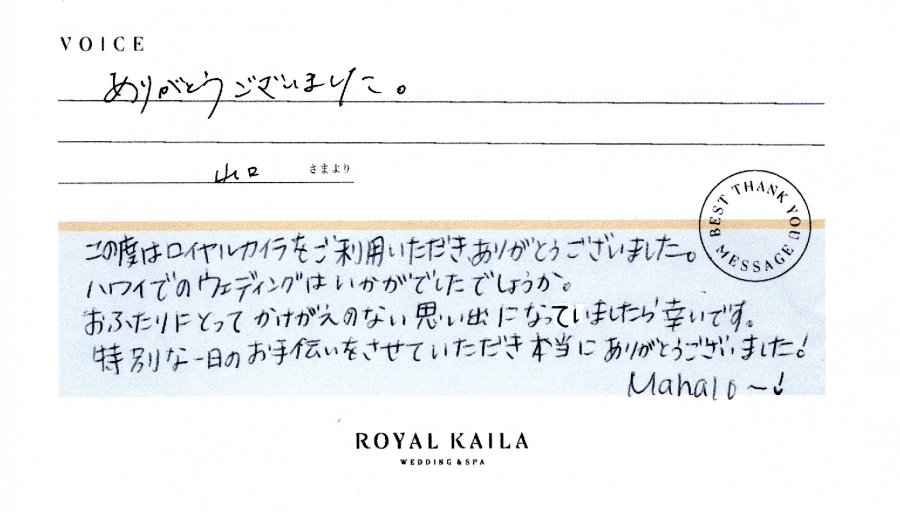 VOICE
ありがとうございました。
山口 さまより
BEST THANK YOU MESSAGE
この度はロイヤルカイラをご利用いただき、ありがとうございました。
ハワイでのウェディングはいかがでしたでしょうか。
おふたりにとってかけがえのない思い出になっていましたら幸いです。
特別な一日のお手伝いをさせていただき本当にありがとうございました!
Mahalo～!
ROYAL KAILA
WEDDING & SPA